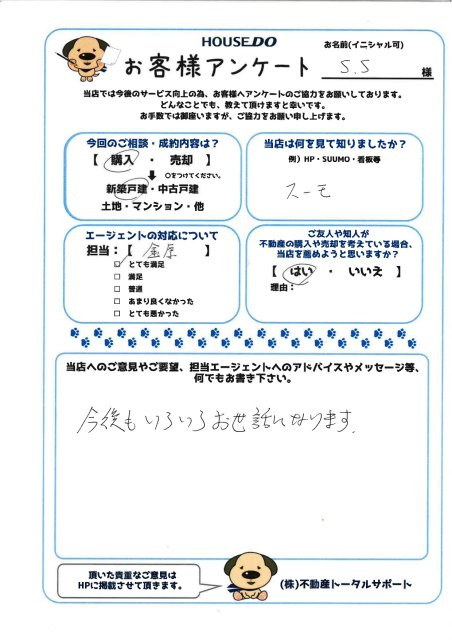 HOUSEDO
お客様アンケート
お名前(イニシャル可)
S.S 様
当店では今後のサービス向上の為、お客様へアンケートのご協力をお願いしております。
どんなことでも、教えて頂けますと幸いです。
お手数では御座いますが、ご協力をお願い申し上げます。
今回のご相談・成約内容は?
【 購入 ・ 売却 】
○をつけてください。
新築戸建・中古戸建
土地・マンション・他
当店は何を見て知りましたか?
例)HP・SUUMO・看板等
スーモ
エージェントの対応について
担当:【 金原 】
□ とても満足
□ 満足
□ 普通
□ あまり良くなかった
□ とても悪かった
ご友人や知人が
不動産の購入や売却を考えている場合、
当店を薦めようと思いますか?
【 はい ・ いいえ 】
理由:
当店へのご意見やご要望、担当エージェントへのアドバイスやメッセージ等、
何でもお書き下さい。
今後もいろいろお世話になります.
頂いた貴重なご意見は
HPに掲載させて頂きます。
(株)不動産トータルサポート